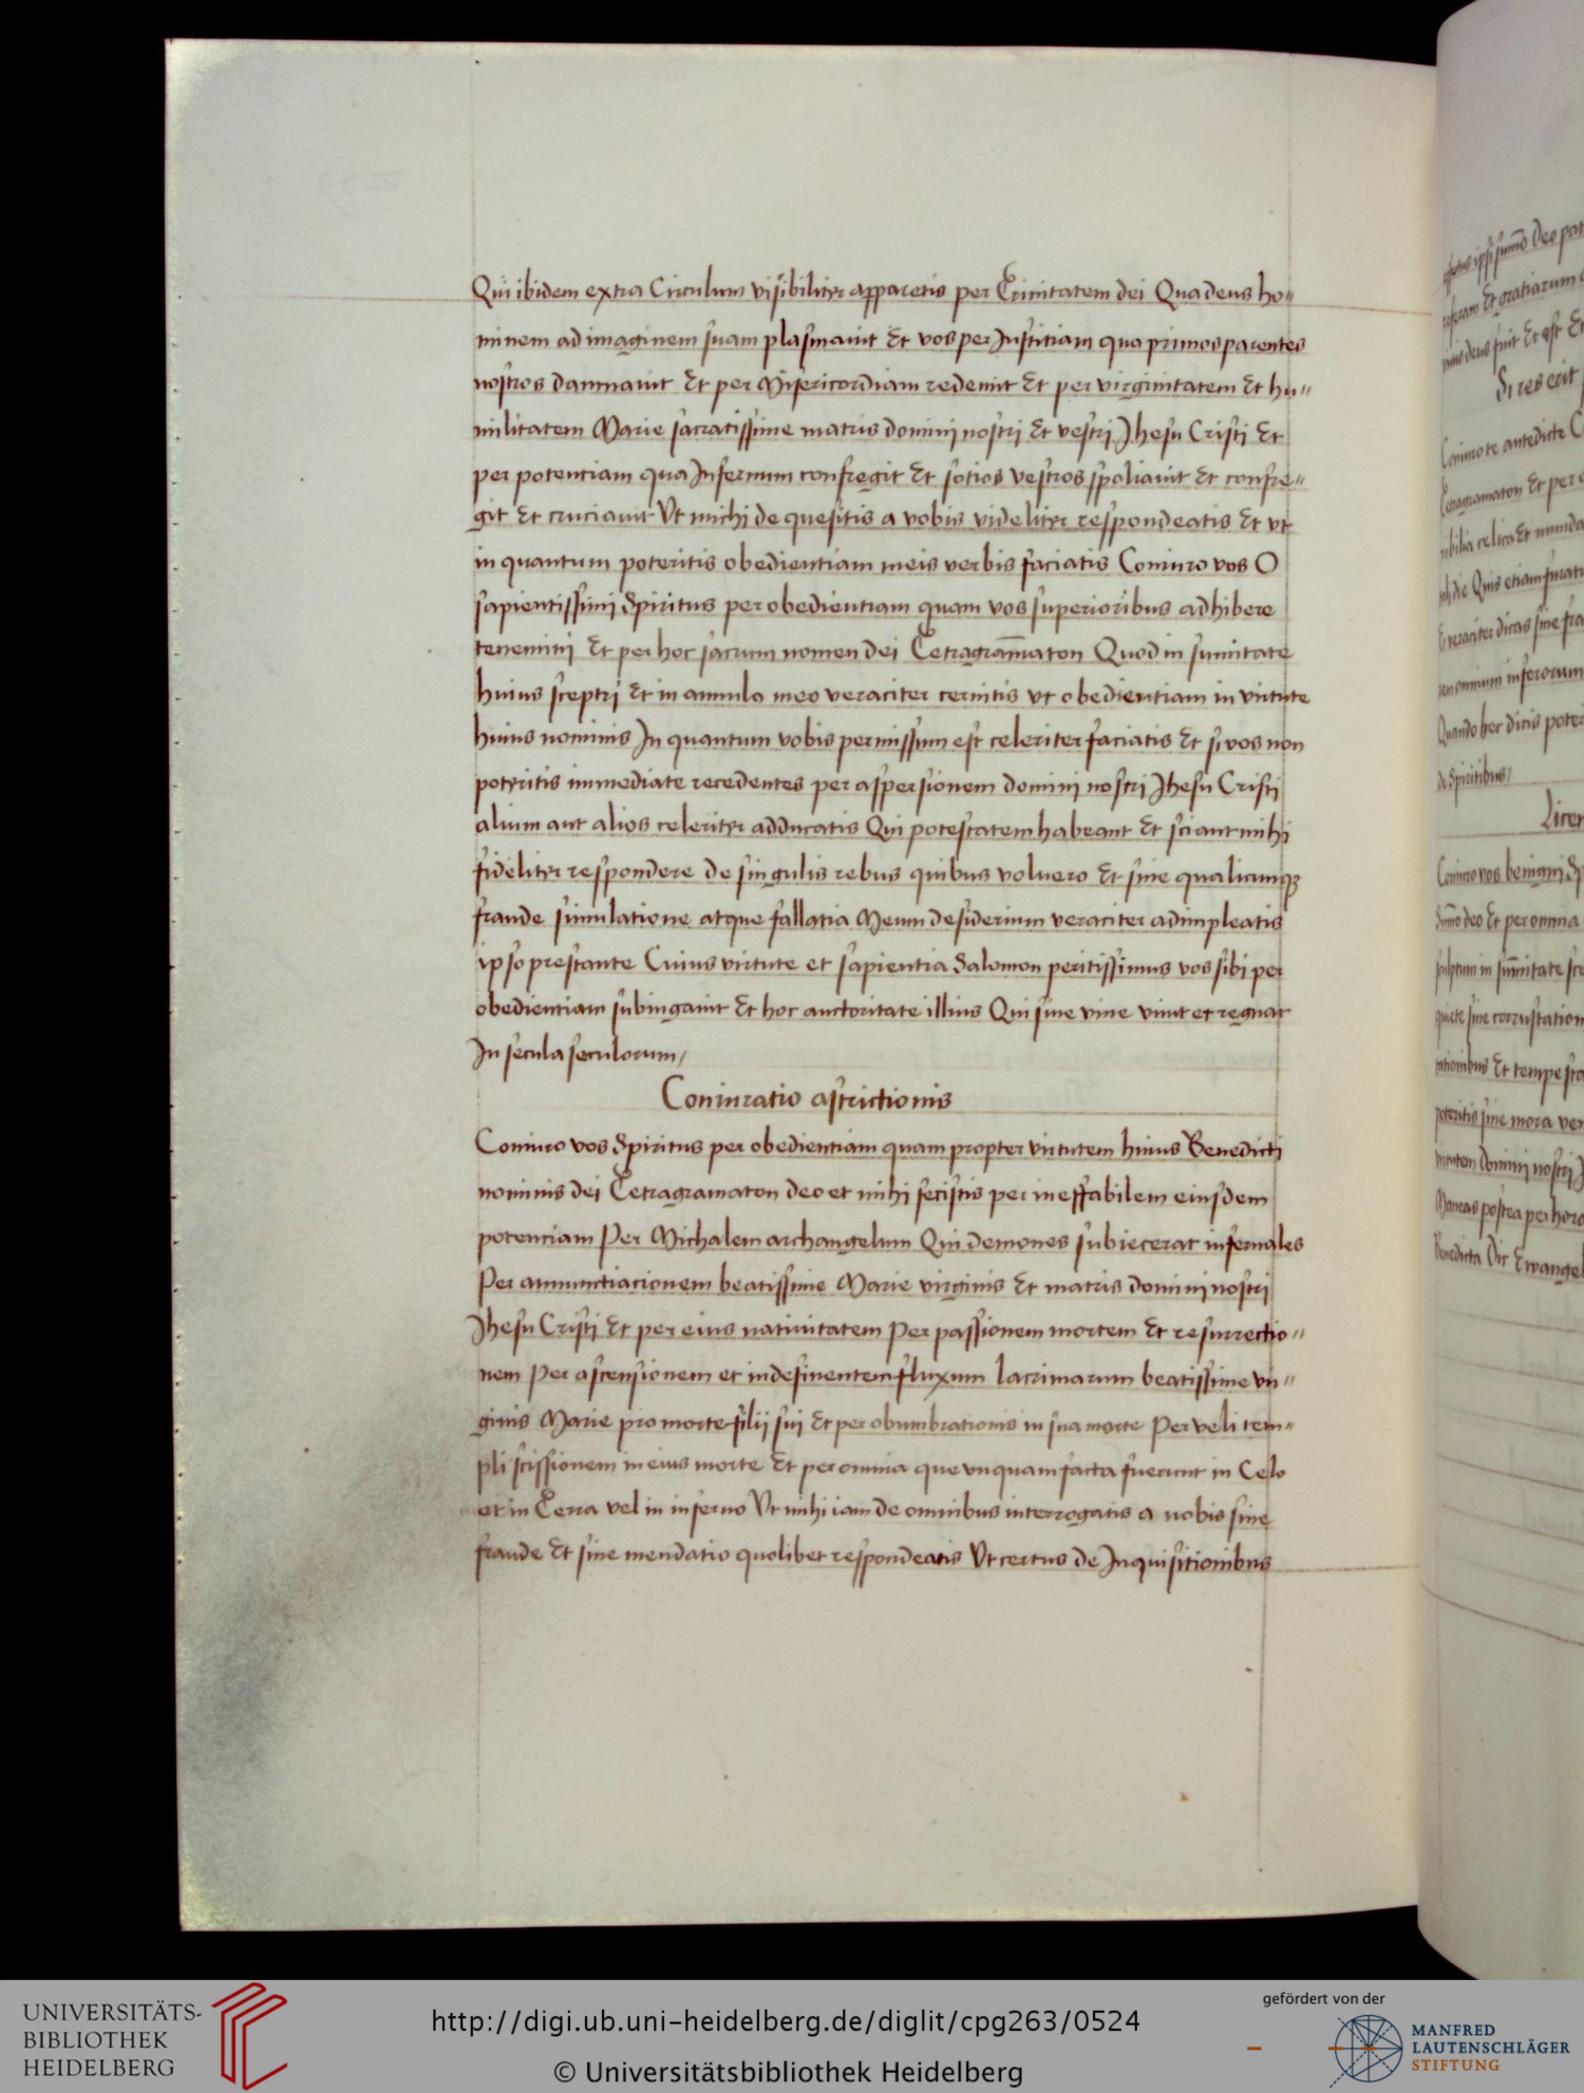 Qui ibidem extra Circulum visibiliter apparetis per Trinitatem dei Qua deus ho〃
minem ad imaginem suam plasmauit Et vos per Justitiam qua primos parentes
nostros damnauit Et per Misericordiam redemit Et per virginitatem Et hu〃
militatem Marie sacratissime matris dominj nostrj Et vestrj Jhesu Cristi Et
per potentiam qua Infernum confregit Et sotios vestros spoliauit Et confre〃
git Et cruciauit Vt michi de quesitis a vobis videliter respondeatis Et vt
in quantum poteritis obedientiam meis verbis faciatis Coniuro vos O
sapientissimj Spiritus per obedientiam quam vos superioribus adhibere
teneminj Et per hoc sacrum nomen dei Tetragram̄aton Quod in sumitate
huius sceptrj Et in annulo meo veraciter cernitis vt obedientiam in virtute
huius nominis In quantum vobis permissum est celeriter faciatis Et si vos non
poteritis immediate recedentes per aspersionem dominj nostrj Jhesu Cristi
alium aut alios celeriter adducatis Qui potestatem habeant Et sciant mihi
fideliter respondere de singulis rebus quibus voluero Et sine qualicumqꝫ
fraude simulatione atque fallatia Meum desiderium veraciter adimpleatis
ipso prestante Cuius virtute et sapientia Salomon peritissimus vos sibi per
obedientiam subiugauit Et hoc auctoritate illius Qui sine vine viuit et regnat
In secula seculorum /
Coniuratio astrictionis
Coniuro vos Spiritus per obedientiam quam propter virtutem huius Benedicti
nominis dei Tetragramaton deo et mihi fecistis per ineffabilem eiusdem
potentiam Per Michalem archangelum Qui demones subiecerat infernales
Per annunctiacionem beatissime Marie virginis Et matris dominj nostrj
Jhesu Cristj Et per eius natiuitatem Per passionem mortem Et resurrectio〃
nem Per ascensionem et indesinentem fluxum lacrimarum beatissime vir〃
ginis Marie pro morte filij suj Et per obumbrationis in sua morte Per veli tem〃
pli scissionem in eius morte Et per omnia que vnquam facta fuerunt in Celo
et in Terra vel in inferno Vt mihi iam de omnibus interrogatis a uobis sine
fraude Et sine mendatio quolibet respondeatis Vt certus de Inquisitionibus
Si res erit
UNIVERSITÄTS-
BIBLIOTHEK
HEIDELBERG
http://digi.ub.uni-heidelberg.de/diglit/cpg263/0524
© Universitätsbibliothek Heidelberg
gefördert von der
MANFRED
LAUTENSCHLÄGER
STIFTUNG